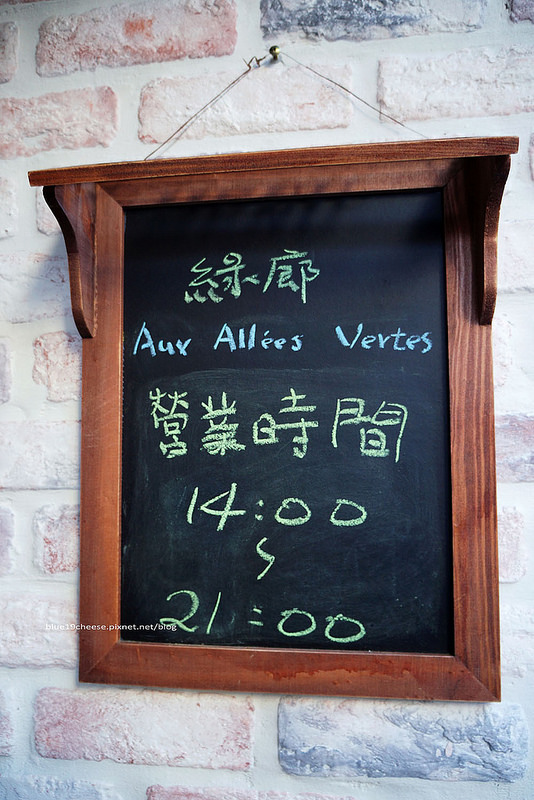 綠廊
Aux Allées Vertes
營業時間
14:00
~
21:00
blue19cheese.pixnet.net/blog